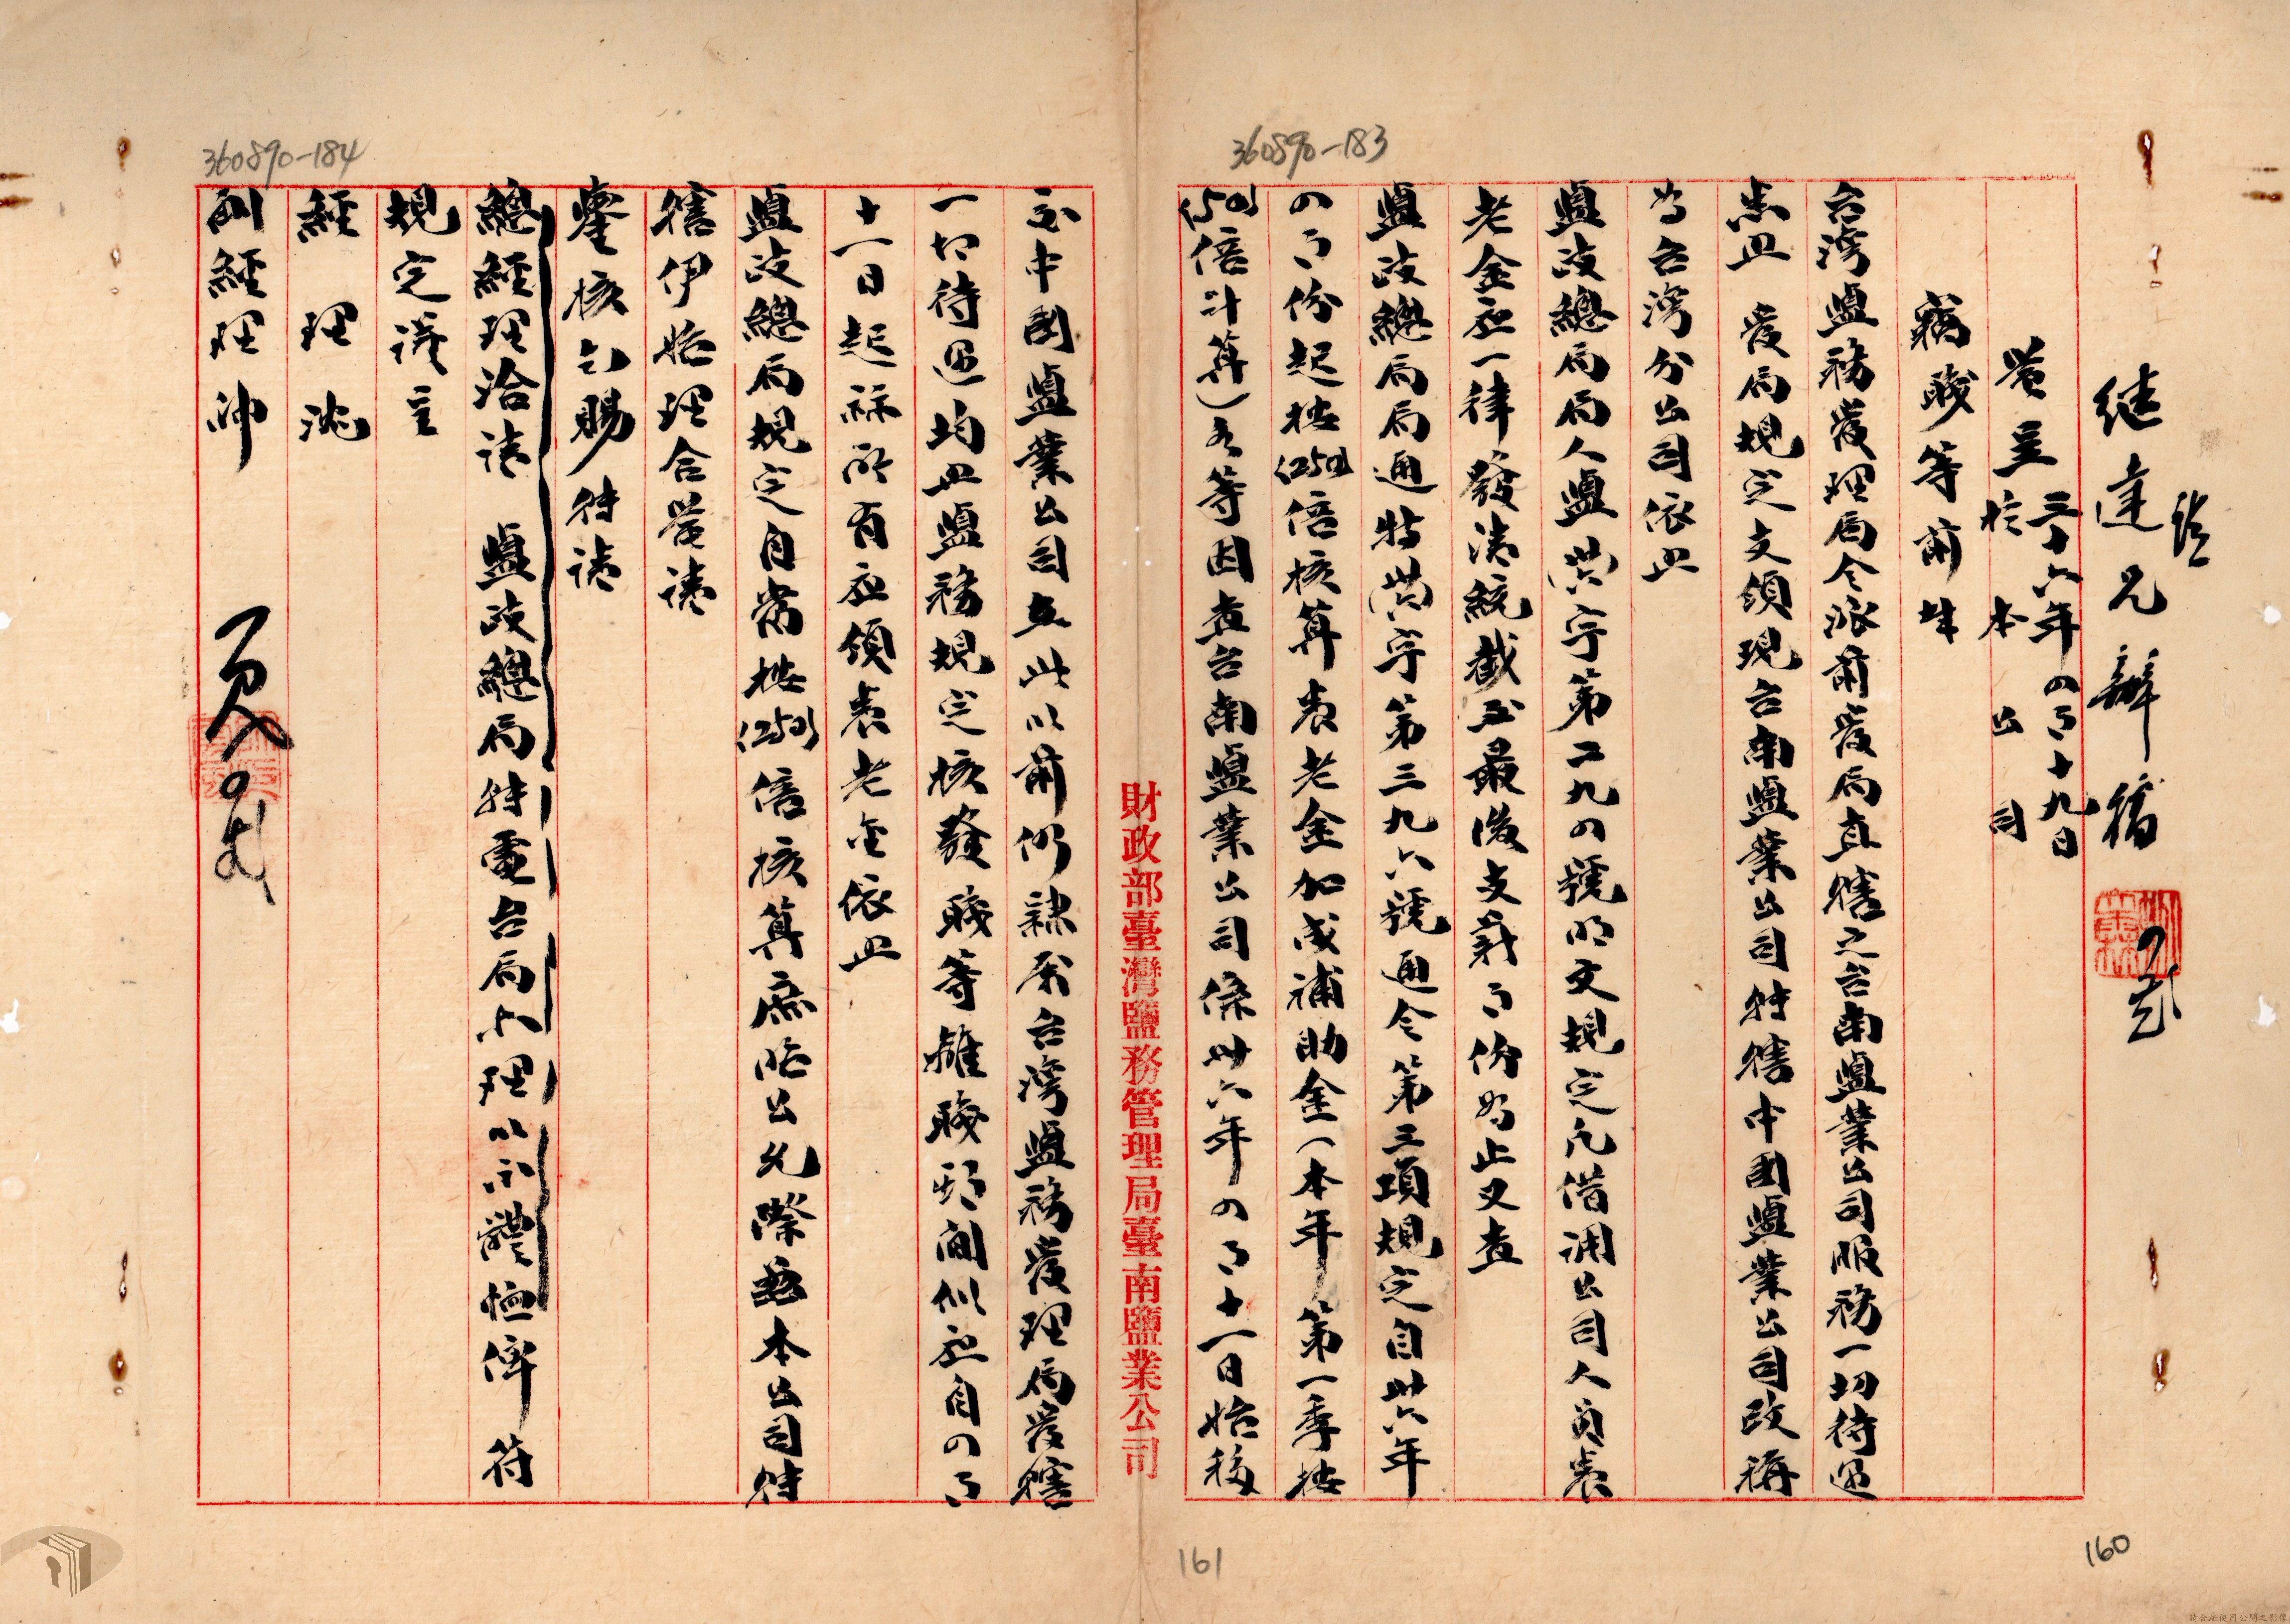 360890-183
繼達兄辦稿
簽呈 三十六年四月十九日
於本公司
竊職等前奉
台灣鹽務管理局令派前管局直轄之台南鹽業公司服務一切待遇
悉照 管局規定支領現台南鹽業公司時轄中國鹽業公司改稱
為台灣分公司依照
鹽政總局局人鹽 字第二九四號明文規定凡借調公司人員養
老金應一律發清統截至最後支薪月份為止又查
鹽政總局局通特 字第三九六號通令第三項規定自卅六年
四月份起按(250)倍核算養老金加成補助金(本年第一季按
(150)倍計算)各等因查台南鹽業公司係卅六年四月十一日始移
財政部臺灣鹽務管理局臺南鹽業公司
161
160
360890-184
至中國鹽業公司在此以前仍隸屬台灣鹽務管理局管轄
一切待遇均照鹽務規定核發職等離職期間似應自四月
十一日起祘所有應領養老金依照
鹽政總局規定自當按(250)倍核算庶臨公允際茲本公司時
轄伊始理合簽請
鑒核乞賜特請
總經理洽請 鹽政總局特電台局辦理以示體恤俾符
規定謹呈
經理沈
副經理